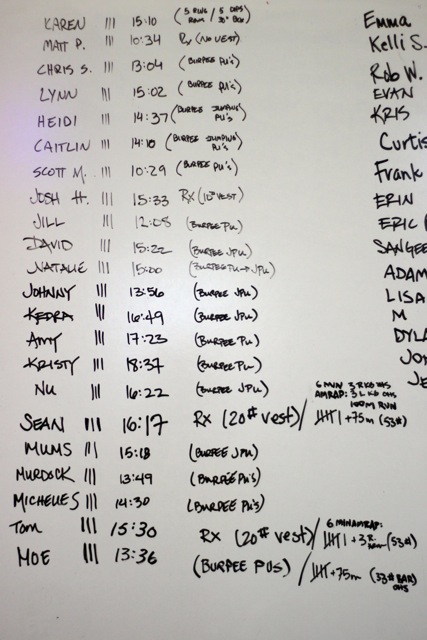 KAREN III 15:10 (5 RING ROW / 5 OHS 30" BOX) Emma
MATT P. III 10:34 Rx (NO VEST) Kelli S.
CHRIS S. III 13:04 (BURPEE PU'S) Rob W.
LYNN III 15:02 (BURPEE PU'S) EVAN
HEIDI III 14:37 (BURPEE JUMPING PU'S) KRIS
CAITLIN III 14:10 (BURPEE JUMPING PU'S) Curtis
SCOTT M. III 10:29 (BURPEE PU'S) Frank
JOSH H. III 15:33 RX (10# VEST) ERIN
JILL III 12:08 (BURPEE PU) ERIC
DAVID III 15:22 (BURPEE JPU) SANGEE
NATALIE III 15:00 (BURPEE PU JPU) ADAM
JOHNNY III 13:56 (BURPEE JPU) LISA
KEDRA III 16:49 (BURPEE JPU) M
AMY III 17:23 (BURPEE PU) DYLA
KRISTY III 18:37 (BURPEE PU)
NU III 16:22 (BURPEE JPU) 6 MIN AMRAP: 3 R KB 3 L KB OHS 100M RUN
SEAN III 16:17 RX (20# vest) / IIII I +75m (53#)
MUMS III 15:18 (BURPEE JPU)
MURDOCK III 13:49 (BURPEE PU'S)
MICHELLE S III 14:30 (BURPEE PU'S)
Tom III 15:30 RX (20# vest) / 6 MIN AMRAP: IIII I +3 R (53#)
MOE III 13:36 (BURPEE PUS) / IIII +75m (33# BAR) OHS